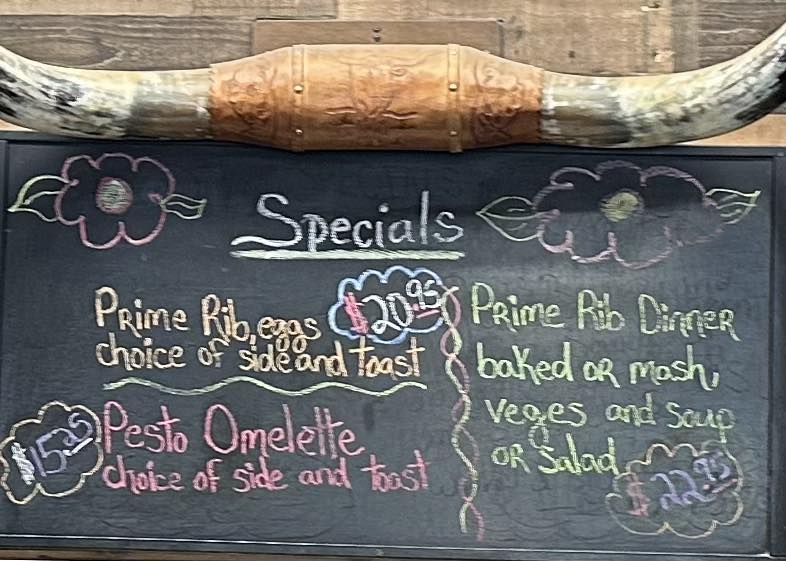 Specials
Prime Rib, eggs $20.95
choice of side and toast
Pesto Omelette
choice of side and toast
$15.25
Prime Rib Dinner
baked or mash,
veges and soup
or salad
$22.95